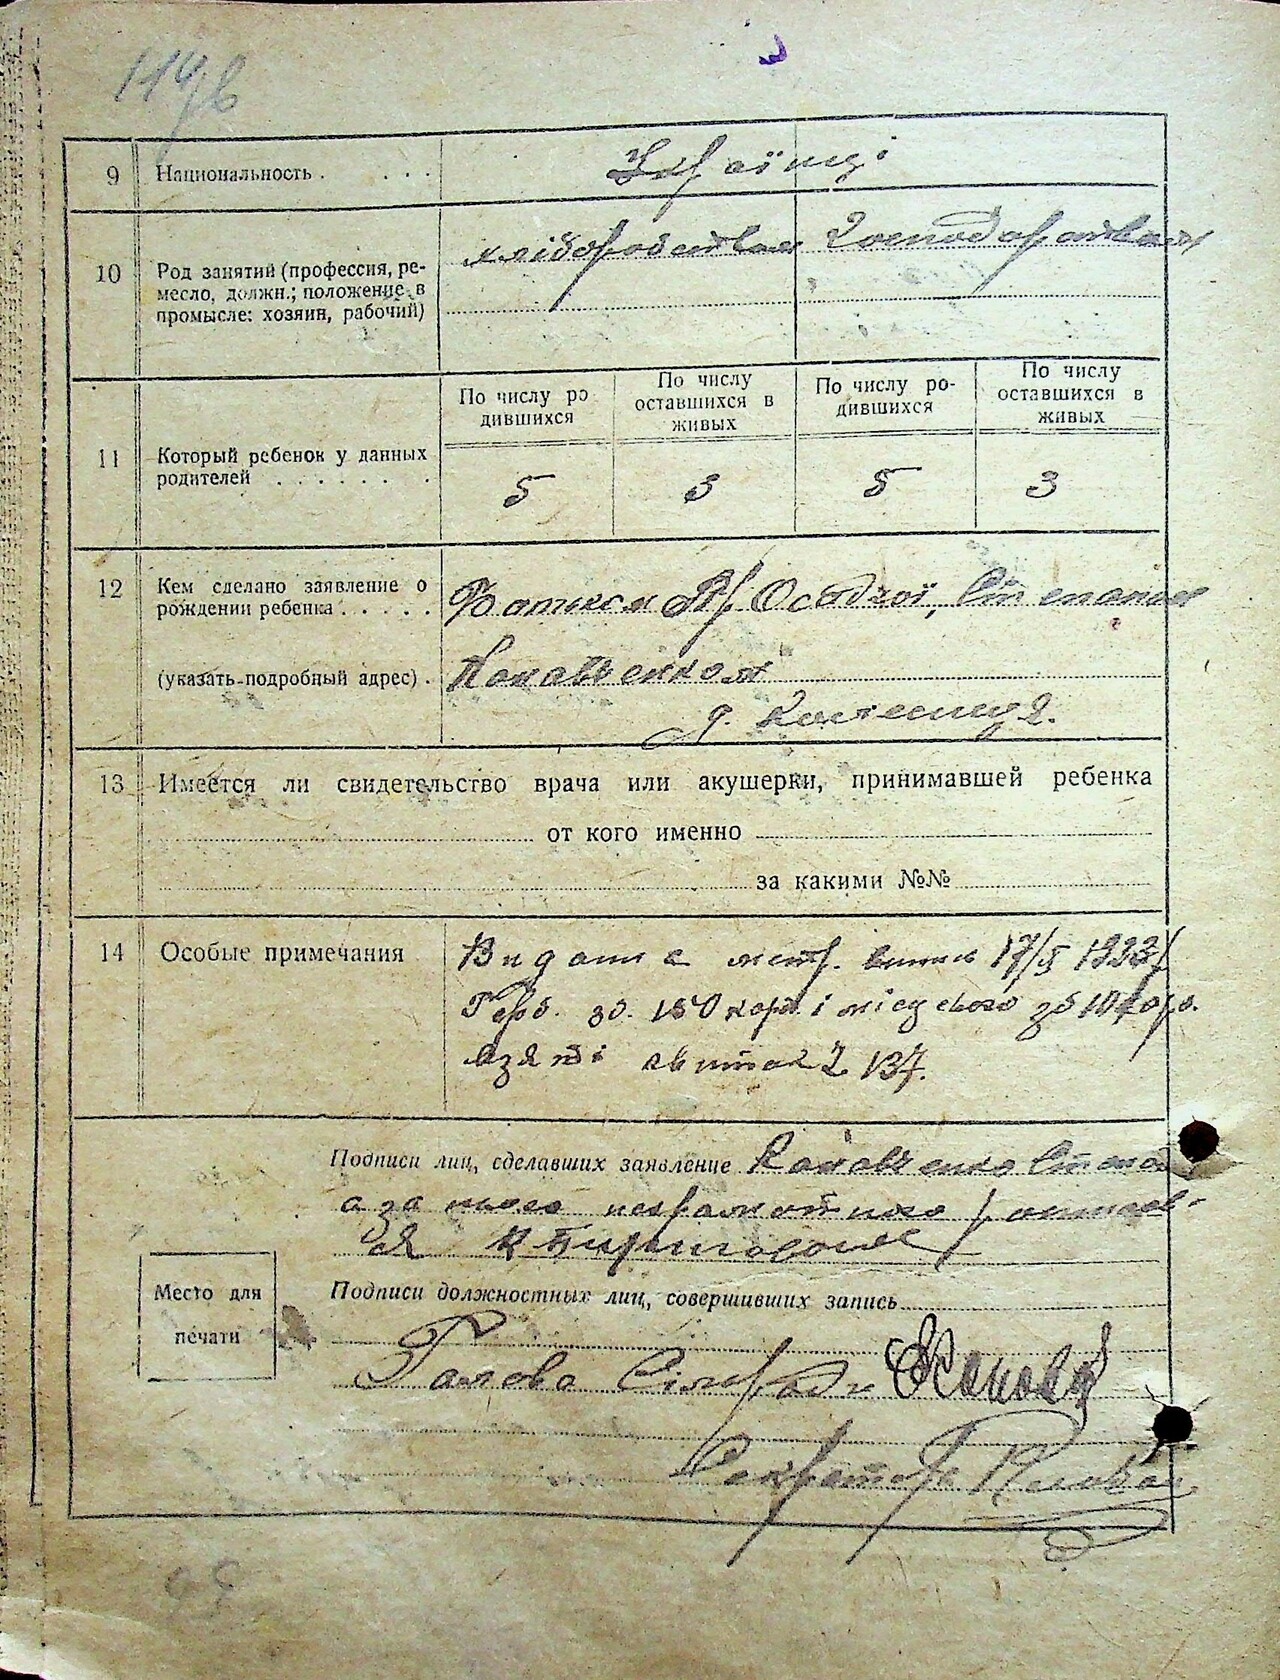 114 зв
9 Национальность . . . . Українці
10 Род занятий (профессия, ре-
месло, должн.; положение в
промысле: хозяин, рабочий)
хліборобством господарством
11 Который ребенок у данных
родителей . . . . . . .
По числу ро
дившихся
По числу
оставшихся в
живых
По числу ро-
дившихся
По числу
оставшихся в
живых
5 3 5 3
12 Кем сделано заявление о
рождении ребенка . . . . .
(указать подробный адрес) .
Батьком Гр. Степаном
13 Имеется ли свидетельство врача или акушерки, принимавшей ребенка
от кого именно
за какими №№
14 Особые примечания
Видана метр. 17/
Герб. зб. 150 карб. і місцевого зб
взяті квиток 137.
Подписи лиц, сделавших заявление
а за його неграмотного
Место для
печати
Подписи должностных лиц, совершивших запись
Голова Сільради
Секретарь